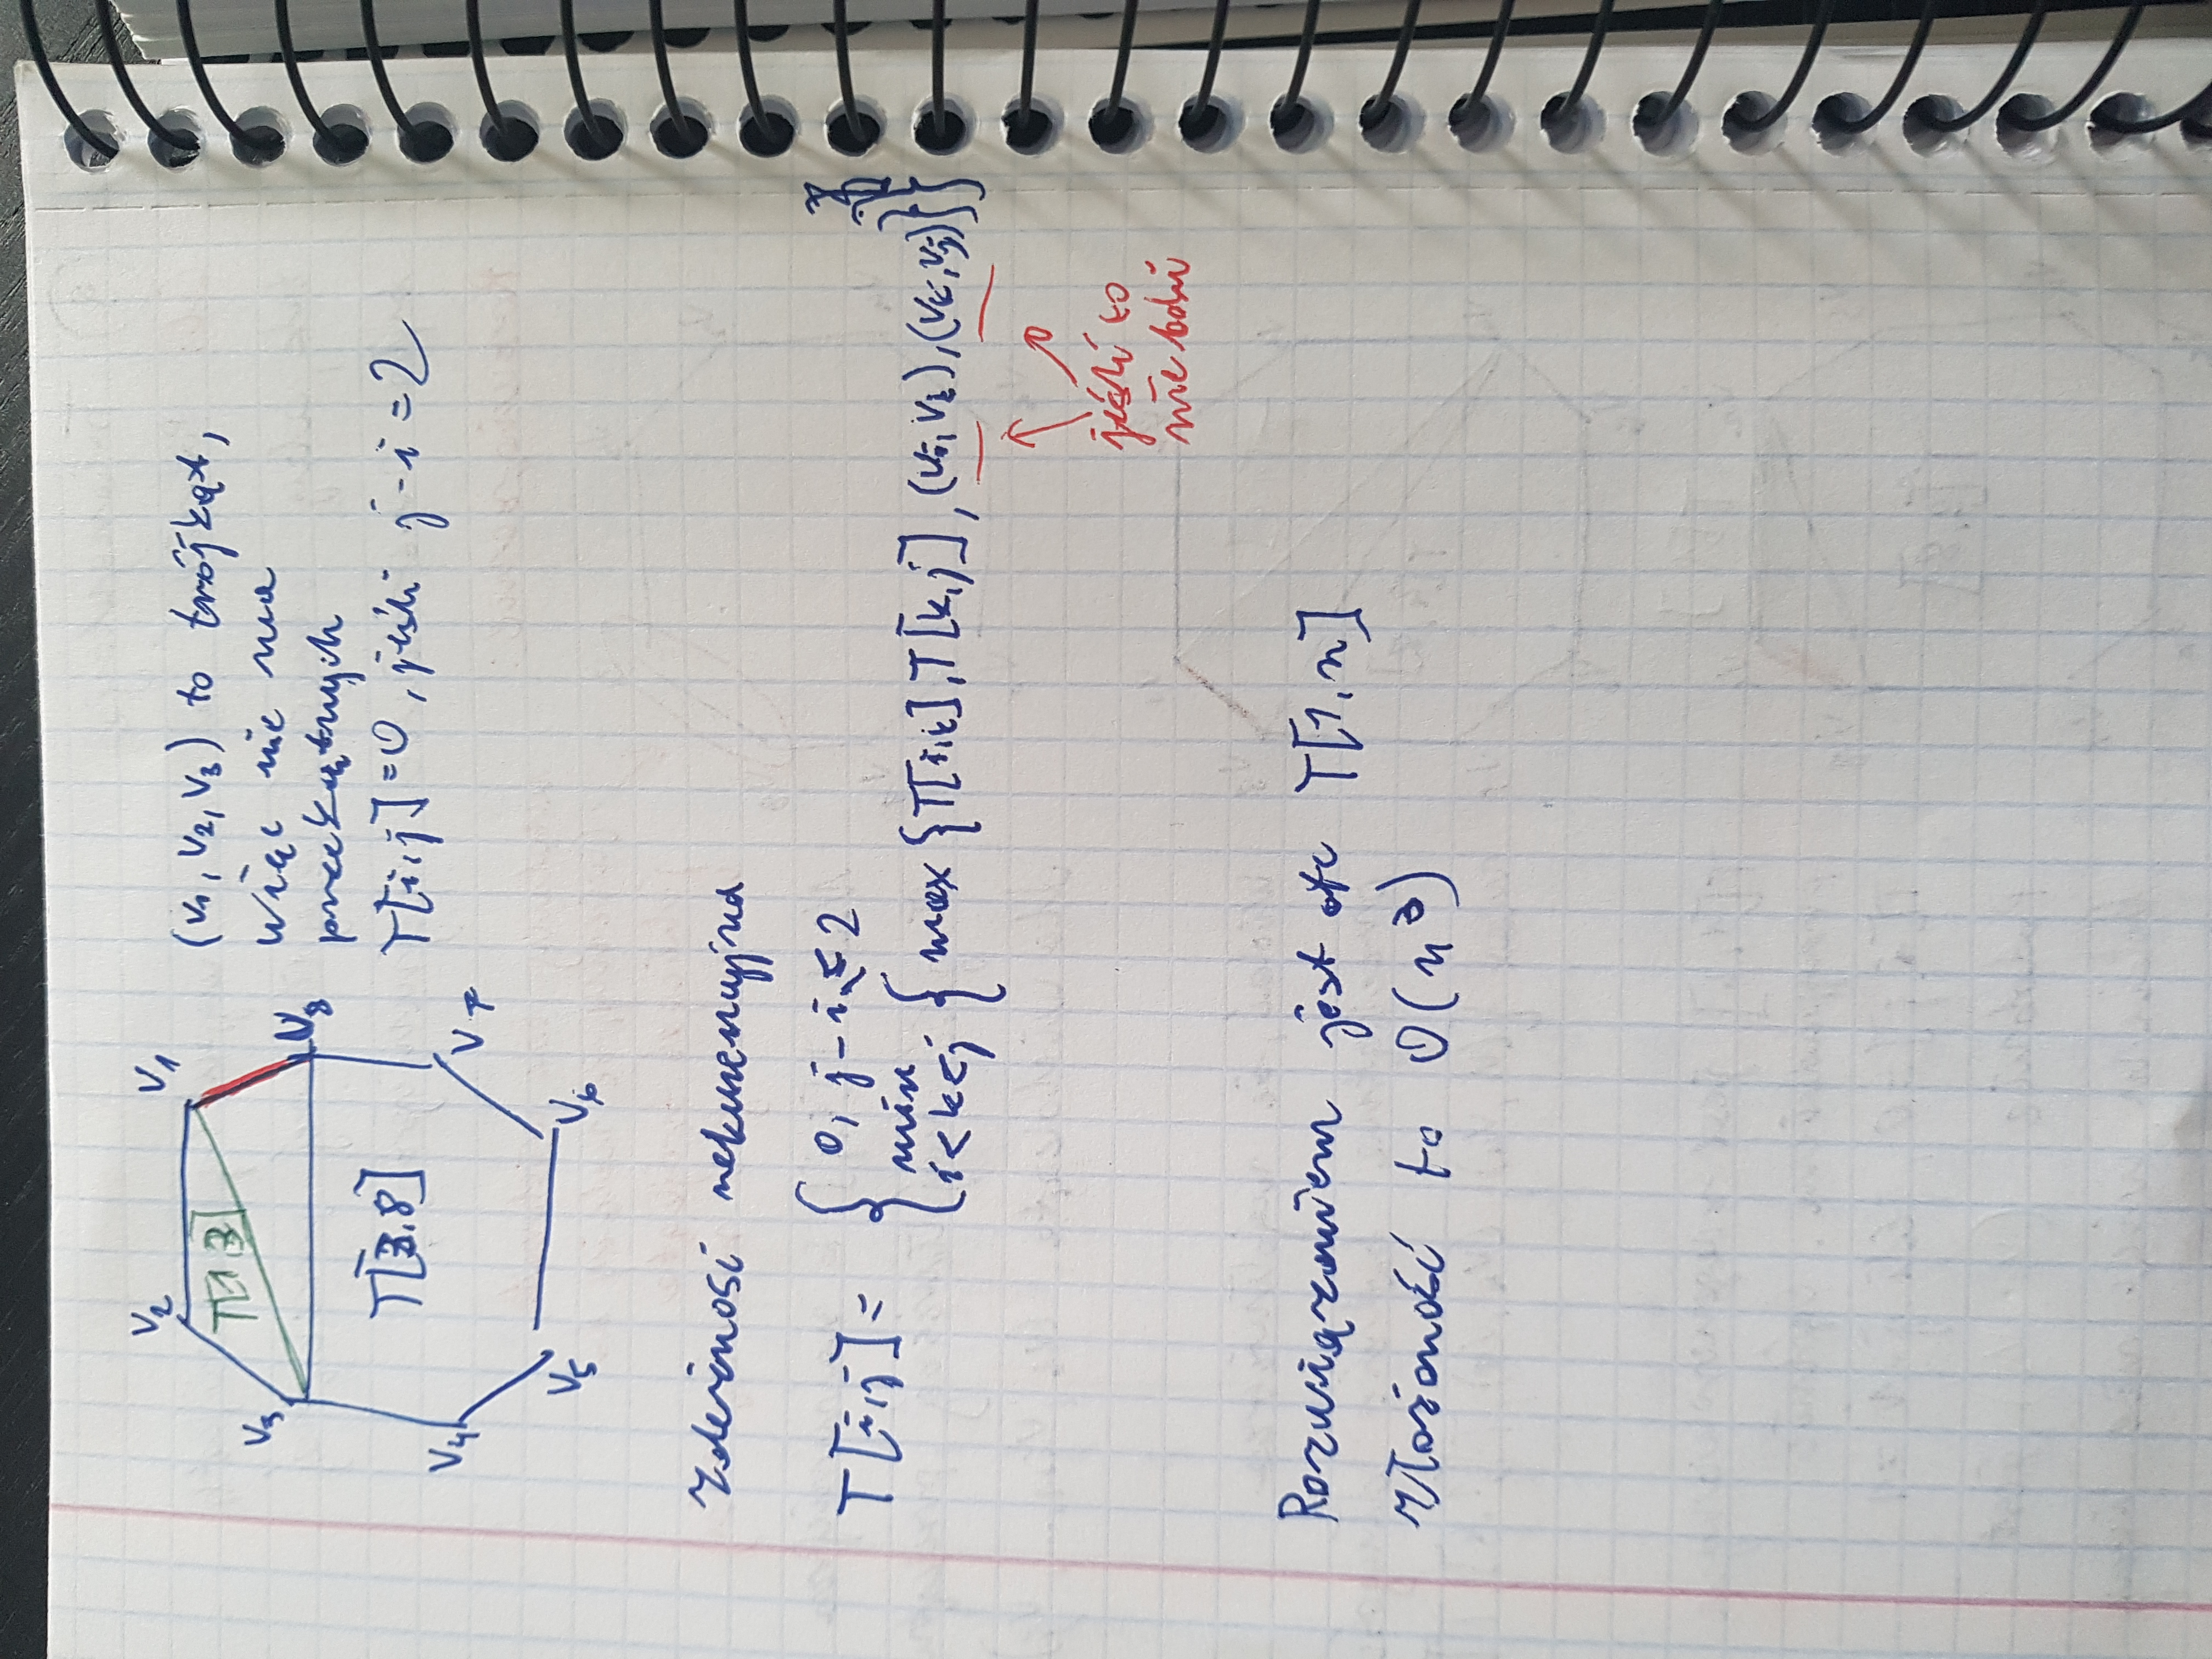 V2
V1
T[1 3]
V3
V8
T[3,8]
V4
V7
V5
V6
(V1, V2, V3) to trójkąt,
więc nie ma
przekątnych
T[i,j]=0, jeśli j-i=2
zależność rekurencyjna
T[i,j]= { 0, j-i ≤ 2
min i<k<j { max {T[i,k], T[k,j], (Vi, Vk), (Vk, Vj)}}
jeśli to
nie boki
Rozwiązaniem jest otc T[1,n]
złożoność to O(n³)